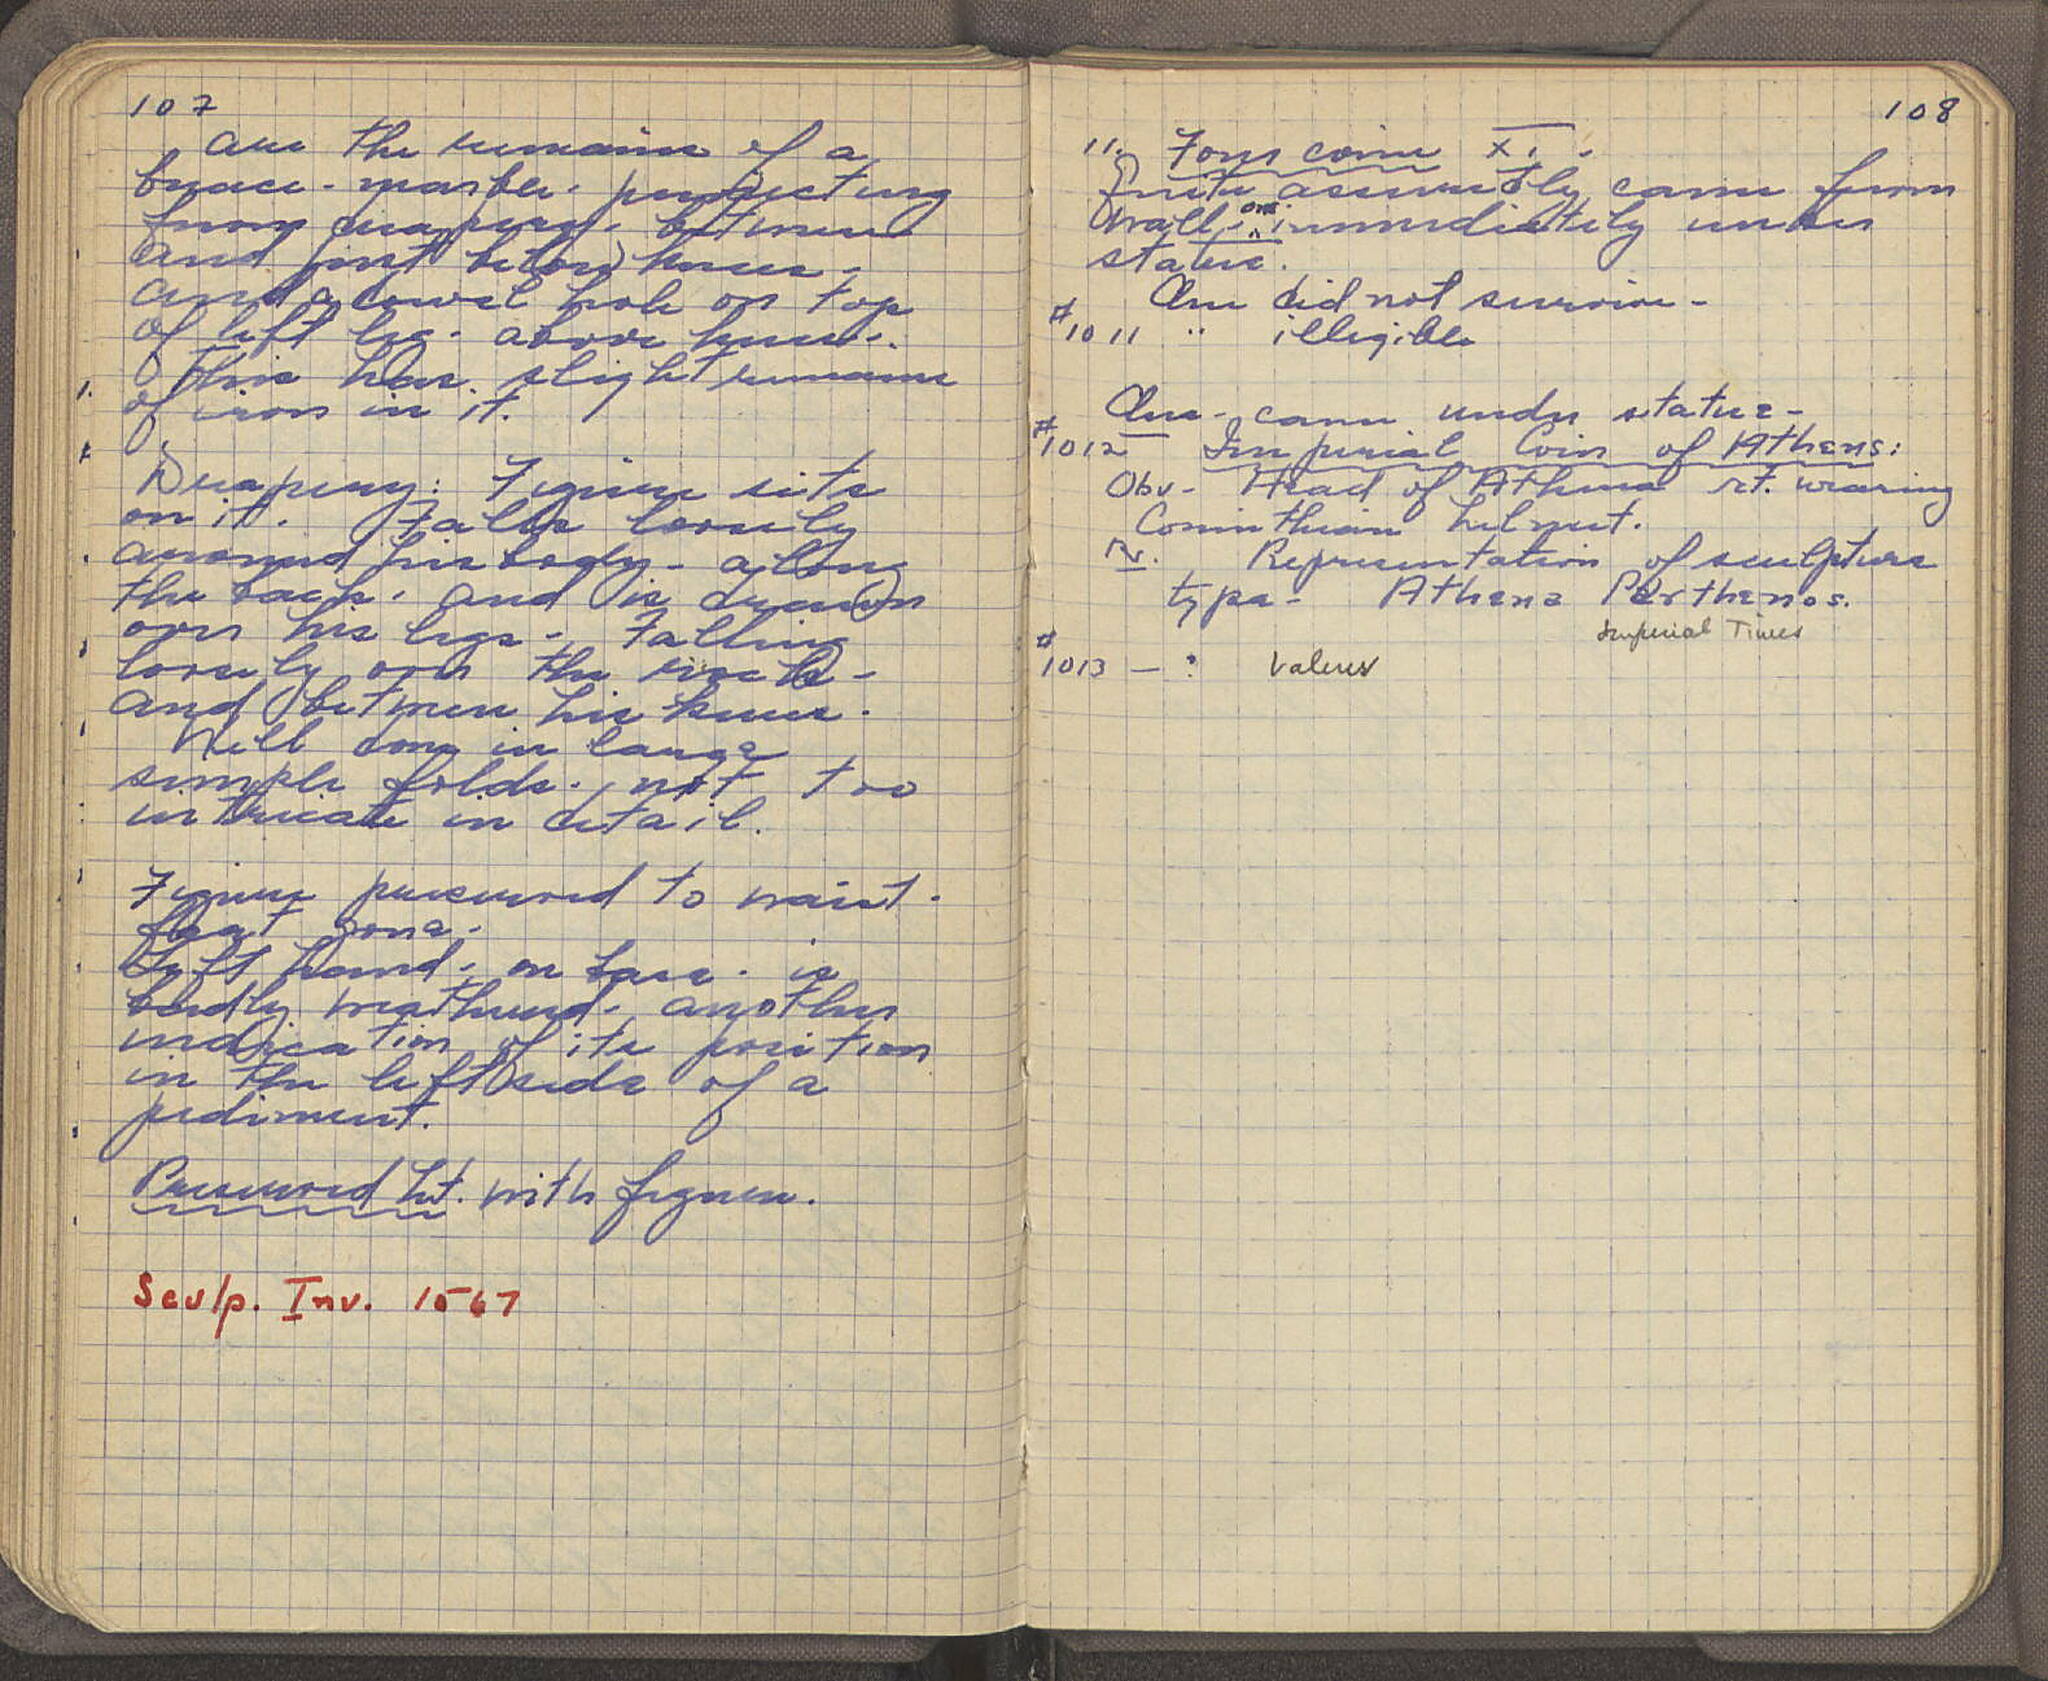 107
are the remains of a
brace - marble - projecting
from drapery - between
and just below knees -
and a dowel hole on top
of left leg - above knee -.
This has slight remains
of iron in it.
Drapery: Figure sits
on it. Falls loosely
around his body - along
the back - and is drawn
over his legs - Falling
loosely over the rock -
and between his knees.
Well done in large
simple folds - not too
intricate in detail.
Figure preserved to waist -
feet gone -
Left hand - on base - is
badly weathered - another
indication of its position
in the left side of a
pediment.
Preserved ht. with figures.
Sculp. Inv. 1567
108
11. Four coins XI -
Quite assuredly came from
wall - one immediately under
statue.
One did not survive -
#1011 " illegible
One - came under statue -
#1012 Imperial Coin of Athens:
Obv - Head of Athena rt. wearing
Corinthian helmet.
Rv. Representation of sculpture
type - Athena Parthenos.
Imperial Times
#1013 - : Valens